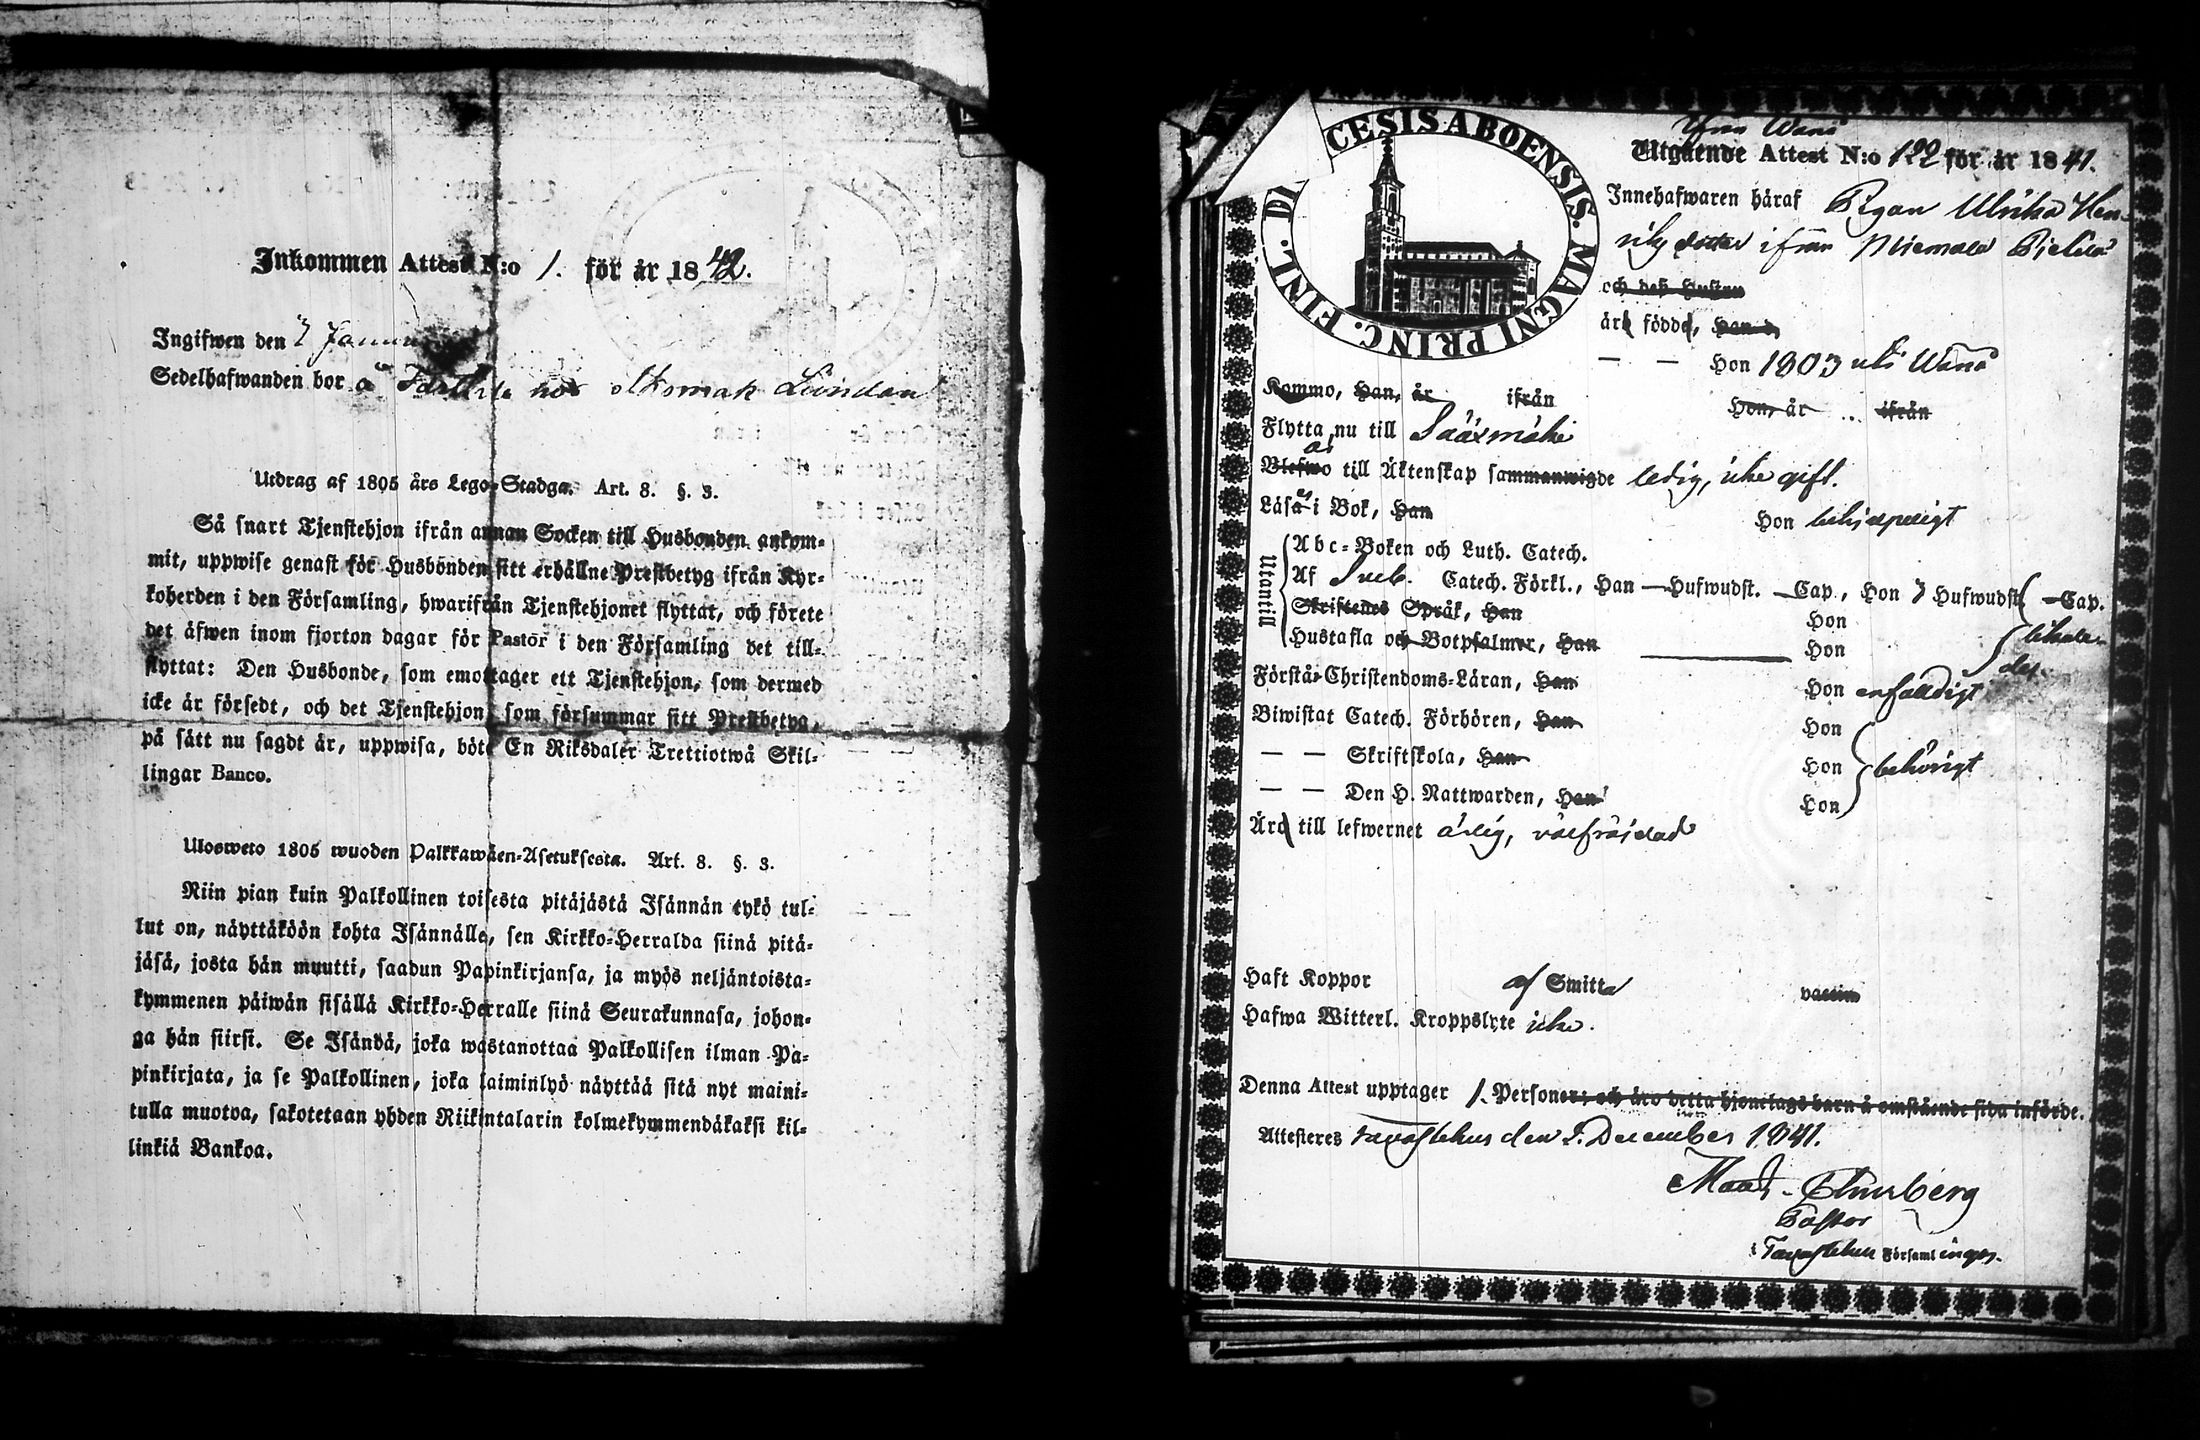 Inkommen Attest N:o 1. för år 1842.
Ingifwen den 7 Janu
Sedelhafwanden bor å hos
Utdrag af 1805 års Lego-Stadga. Art. 8. §. 3.
Så snart Tjenstehjon ifrån annan Socken till Husbonden ankom-
mit, uppwise genast för Husbonden sitt erhållne Prestbetyg ifrån Kyr-
koherden i den Församling, hwarifrån Tjenstehjonet flyttat, och förete
det äfwen inom fjorton dagar för Pastor i den Församling det till-
flyttat: Den Husbonde, som emottager ett Tjenstehjon, som dermed
icke är försedt, och det Tjenstehjon som försummar sitt Prestbetyg,
på sätt nu sagdt är, uppwisa, böte En Riksdaler Trettiotwå Skil-
lingar Banco.
Ulosweto 1805 wuoden Palkkawäen-Asetuksesta. Art. 8. §. 3.
Niin pian kuin Palkollinen toisesta pitäjästä Isännän tykö tul-
lut on, näyttäköön kohta Isännälle, sen Kirkko-Herralda siinä pitä-
jäsä, josta hän muutti, saadun Papinkirjansa, ja myös neljäntoista-
kymmenen päiwän sisällä Kirkko-Herralle siinä Seurakunnasa, johon-
ga hän siirsi. Se Isändä, joka wastanottaa Palkollisen ilman Pa-
pinkirjata, ja se Palkollinen, joka laiminlyö näyttää sitä nyt maini-
tulla muotoa, sakotetaan yhden Riikintalarin kolmekymmendäkaksi kil-
linkiä Bankoa.
DI CESIS ABOENSIS. MAGNI PRINC. FINL.
ifrån Wånå
Utgående Attest N:o 122 för år 1841.
Innehafwaren häraf Pigan Ulrika Hen-
riks dotter ifrån Miemala
och deß Hustru
äro födde, Han d.
— — Hon 1803 uti Wånå
Komma, Han, år ifrån Hon, år .. ifrån
Flytta nu till Sääxmäki
är
Blefwo till Äktenskap sammanwigde ledig, icke gift.
Läsa i Bok, Han Hon behjelpeligt
Utantill
Abc-Boken och Luth. Catech.
Af Sveb. Catech. Förkl., Han — Hufwudst. — Cap., Hon 3 Hufwudst. — Cap.
Skriftenes Språk, Han Hon
Hustafla och Botpsalmer, Han Hon
Förstår Christendoms-Läran, Han Hon enfaldigt
Biwistat Catech. Förhören, Han Hon
— — Skriftskola, Han Hon behörigt
— — Den H. Nattwarden, Han Hon
Äro till lefwernet ärlig, välfräjdad
Haft Koppor af Smitta vaccin
Hafwa Witterl. Kroppslyte icke.
Denna Attest upptager 1. Personer; och äro detta hjonelags barn å omstående sida införde.
Attesteres Tavastehus den 2. December 1841.
Pastor
i Tavastehus Församlingar.